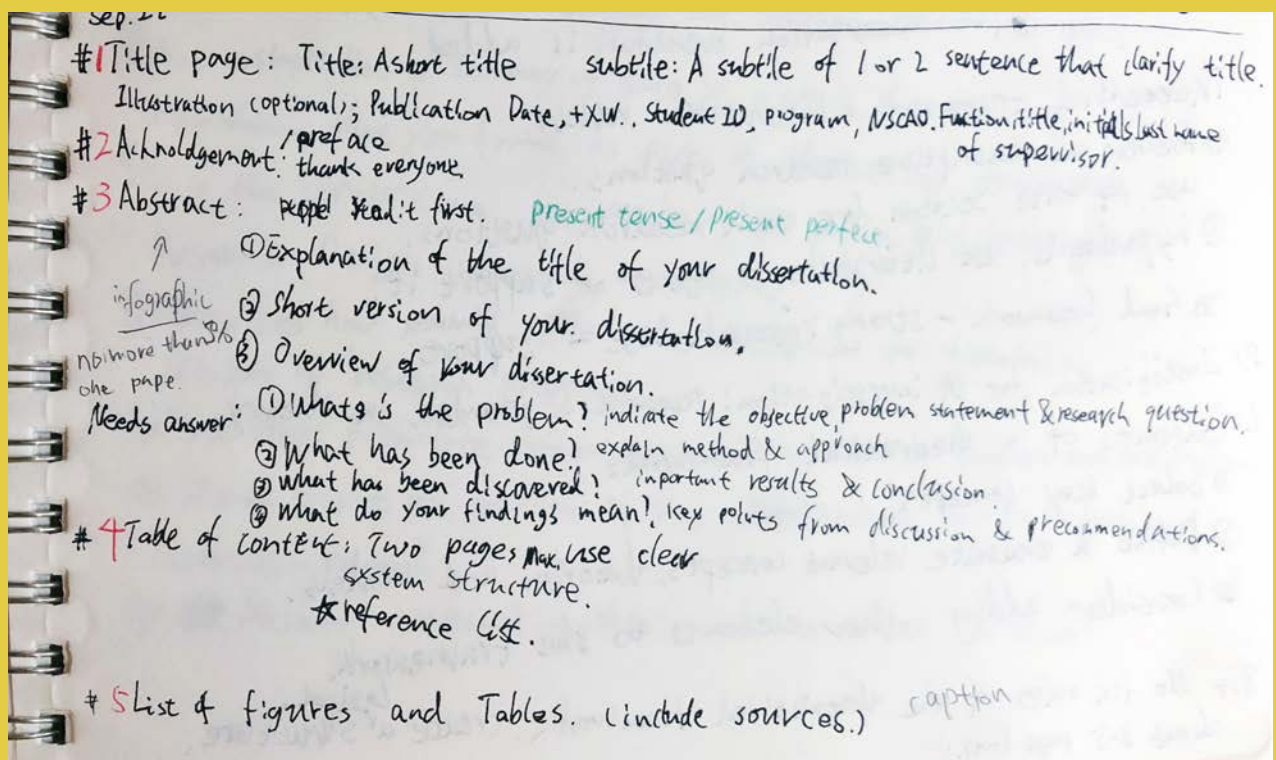 Sep.
#1 Title page: Title: A short title subtile: A subtile of 1 or 2 sentence that clarify title.
Illustration (optional); Publication Date, +XW., Student ID, program, NSCAO. Fuction, title, initials last name of supervisor.
#2 Acknoldgement: /preface
thank everyone.
#3 Abstract: read it first. present tense / present perfect.
① Explanation of the title of your dissertation.
② Short version of your dissertation.
③ Overview of your dissertation.
infographic
no more than
one page.
Needs answer: ① Whats's is the problem? indicate the objective, problem statement & research question.
② What has been done? explain method & approach
③ What has been discovered? important results & conclusion.
④ What do your findings mean?, key points from discussion & precommendations.
# 4 Table of content: Two pages max, use clear
system structure.
☆ reference list.
# 5 List of figures and Tables. (include sources.) caption